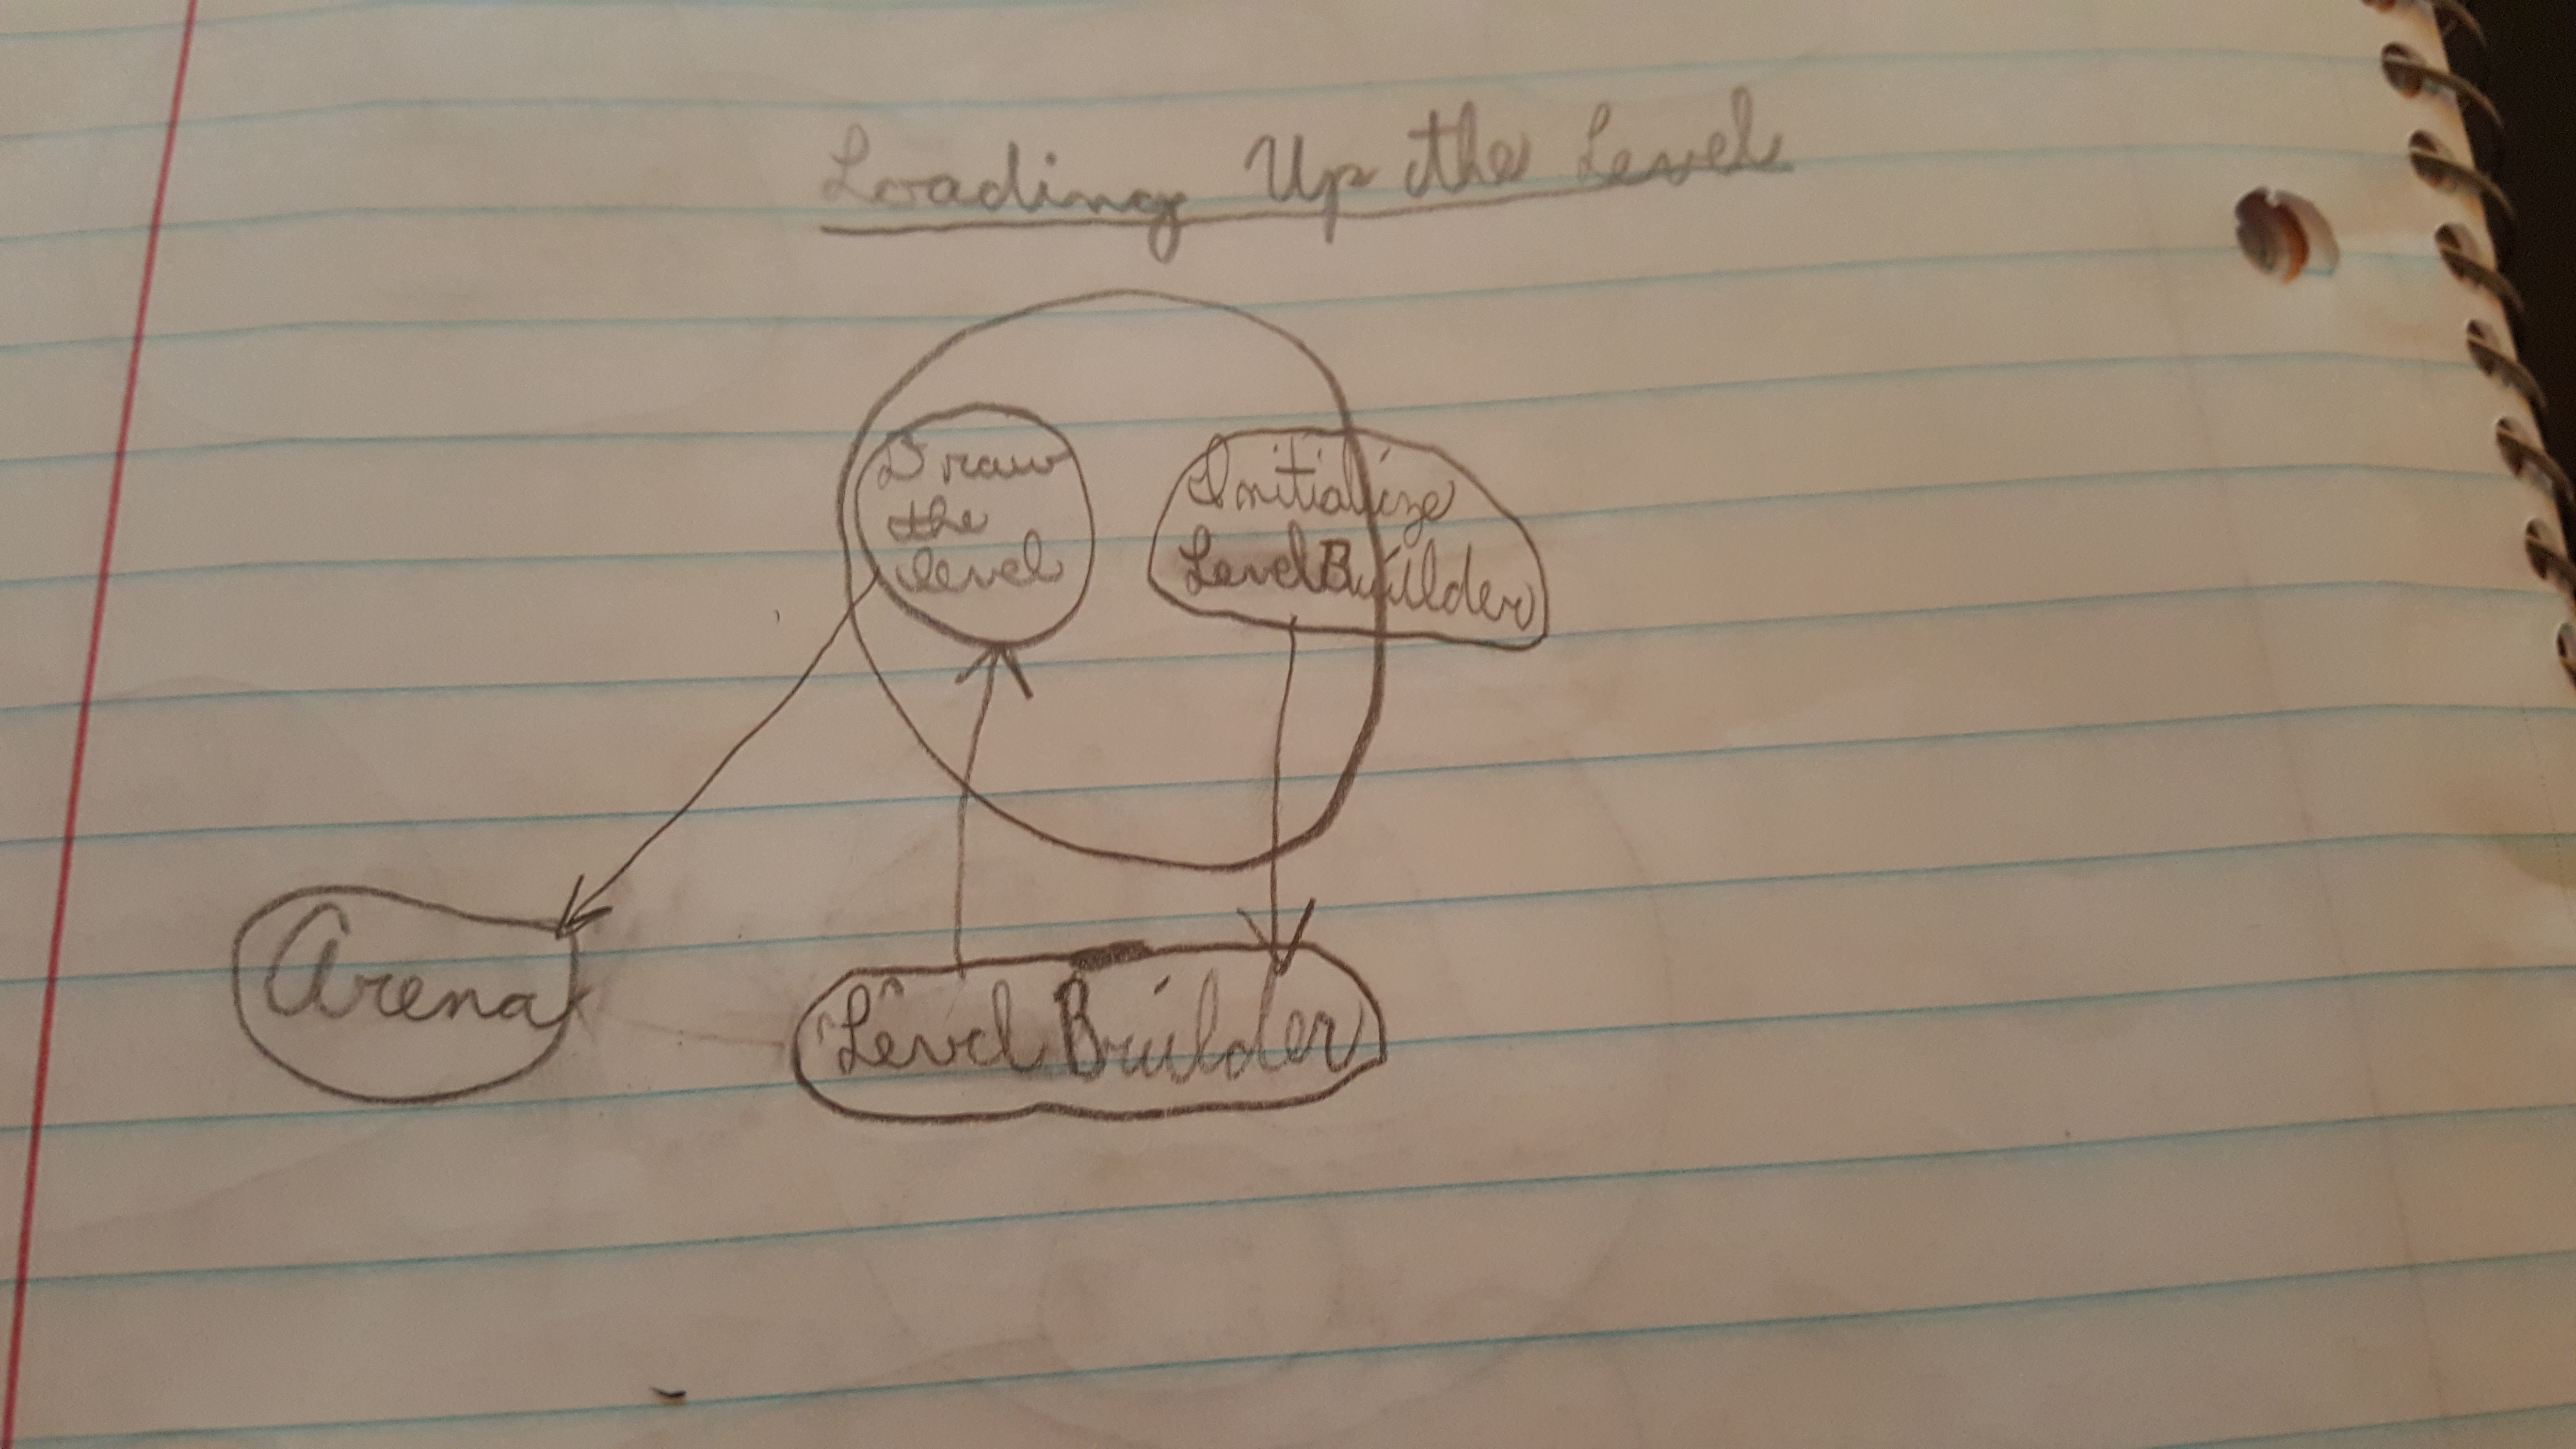 Loading Up the Level
Draw
the
level
Initialize
LevelBuilder
Arena
LevelBuilder